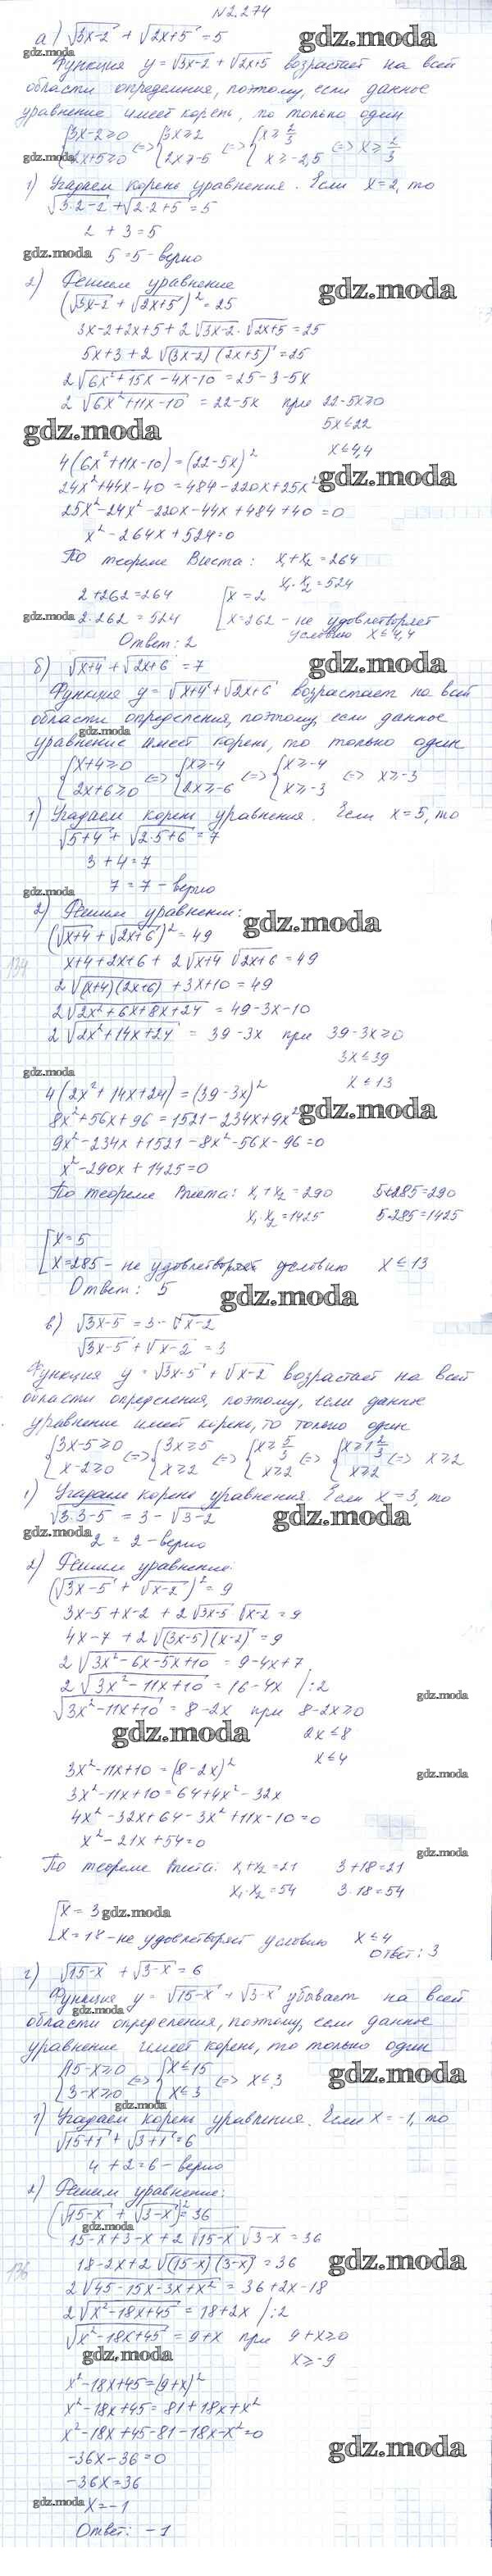 №2.274
а) √3x-2 + √2x+5 = 5
gdz.moda
Функция y = √3x-2 + √2x+5 возрастает на всей
области определения, поэтому, если данное
уравнение имеет корень, то только один
{3x-2≥0 {3x≥2 {x≥2/3
{2x+5≥0 <=> {2x≥-5 <=> {x≥-2,5 <=> x≥2/3
gdz.moda
1) Угадаем корень уравнения. Если x=2, то
√3·2-2 + √2·2+5 = 5
2 + 3 = 5
gdz.moda 5=5 - верно
2) Решим уравнение
gdz.moda
(√3x-2 + √2x+5)² = 25
3x-2+2x+5+2√3x-2·√2x+5 = 25
5x+3+2√(3x-2)(2x+5) = 25
2√6x²+15x-4x-10 = 25-3-5x
2√6x²+11x-10 = 22-5x при 22-5x≥0
5x≤22
gdz.moda
x≤4,4
4(6x²+11x-10) = (22-5x)²
gdz.moda
24x²+44x-40 = 484-220x+25x²
25x²-24x²-220x-44x+484+40=0
x²-264x+524=0
По теореме Виета: x₁+x₂=264
x₁·x₂=524
2+262=264 [x=2
gdz.moda 2·262=524 [x=262 - не удовлетворяет
условию x≤4,4
Ответ: 2
б) √x+4 + √2x+6 = 7
gdz.moda
Функция y = √x+4 + √2x+6 возрастает на всей
области определения, поэтому, если данное
gdz.moda
уравнение имеет корень, то только один
{x+4≥0 {x≥-4 {x≥-4
{2x+6≥0 <=> {2x≥-6 <=> {x≥-3 <=> x≥-3
1) Угадаем корень уравнения. Если x=5, то
√5+4 + √2·5+6 = 7
3+4=7
gdz.moda 7=7 - верно
2) Решим уравнение:
gdz.moda
(√x+4 + √2x+6)² = 49
x+4+2x+6+2√x+4 √2x+6 = 49
134
2√(x+4)(2x+6) + 3x+10 = 49
2√2x²+6x+8x+24 = 49-3x-10
2√2x²+14x+24 = 39-3x при 39-3x≥0
3x≤39
gdz.moda
x≤13
4(2x²+14x+24) = (39-3x)²
gdz.moda
8x²+56x+96 = 1521-234x+9x²
9x²-234x+1521-8x²-56x-96=0
x²-290x+1425=0
По теореме Виета: x₁+x₂=290 5+285=290
x₁·x₂=1425 5·285=1425
[x=5
[x=285 - не удовлетворяет условию x≤13
Ответ: 5
gdz.moda
в) √3x-5 = 3-√x-2
√3x-5 + √x-2 = 3
Функция y = √3x-5 + √x-2 возрастает на всей
области определения, поэтому, если данное
уравнение имеет корень, то только один
{3x-5≥0 {3x≥5 {x≥5/3 {x≥1 2/3
{x-2≥0 <=> {x≥2 <=> {x≥2 <=> {x≥2 <=> x≥2
1) Угадаем корень уравнения. Если x=3, то
√3·3-5 = 3-√3-2
gdz.moda
gdz.moda 2=2 - верно
2) Решим уравнение:
(√3x-5 + √x-2)² = 9
3x-5+x-2+2√3x-5 √x-2 = 9
4x-7+2√(3x-5)(x-2) = 9
2√3x²-6x-5x+10 = 9-4x+7
2√3x²-11x+10 = 16-4x /:2
gdz.moda
√3x²-11x+10 = 8-2x при 8-2x≥0
gdz.moda
2x≤8
x≤4
3x²-11x+10 = (8-2x)²
gdz.moda
3x²-11x+10 = 64+4x²-32x
4x²-32x+64-3x²+11x-10=0
x²-21x+54=0
gdz.moda
По теореме Виета: x₁+x₂=21 3+18=21
x₁·x₂=54 3·18=54
[x=3 gdz.moda
[x=18 - не удовлетворяет условию x≤4
Ответ: 3
г) √15-x + √3-x = 6
Функция y = √15-x + √3-x убывает на всей
gdz.moda
области определения, поэтому, если данное
уравнение имеет корень, то только один
{15-x≥0 {x≤15
{3-x≥0 <=> {x≤3 <=> x≤3
gdz.moda
gdz.moda
1) Угадаем корень уравнения. Если x=-1, то
√15+1 + √3+1 = 6
4+2=6 - верно
2) Решим уравнение:
(√15-x + √3-x)² = 36
gdz.moda
15-x+3-x+2√15-x √3-x = 36
18-2x+2√(15-x)(3-x) = 36
gdz.moda
136
2√45-15x-3x+x² = 36+2x-18
2√x²-18x+45 = 18+2x /:2
√x²-18x+45 = 9+x при 9+x≥0
gdz.moda
x≥-9
x²-18x+45 = (9+x)²
x²-18x+45 = 81+18x+x²
x²-18x+45-81-18x-x²=0
gdz.moda
-36x-36=0
-36x=36
gdz.moda x=-1
Ответ: -1